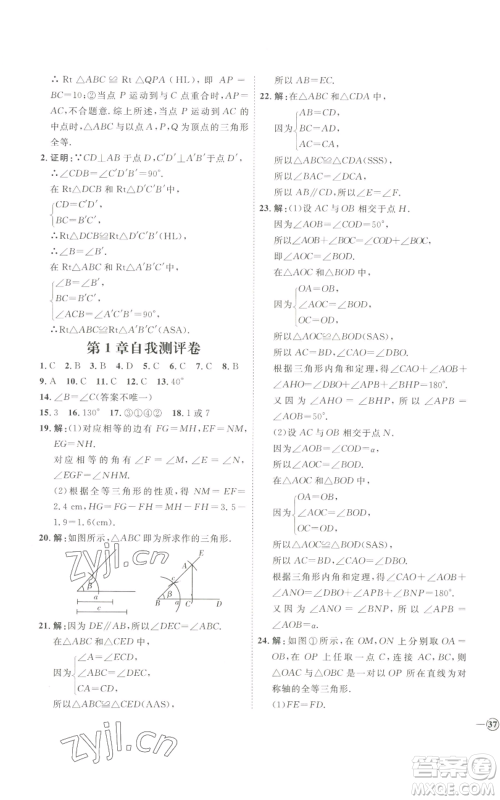 ∴ Rt △ABC ≌ Rt △QPA (HL), 即 AP =
BC=10;②当点 P 运动到与点 C 重合时,AP=
AC,不合题意. 综上所述,当点 P 运动到 AC 的
中点时,△ABC 与以点 A,P,Q 为顶点的三角形
全等.
2. 证明:∵CD⊥AB 于点 D,C′D′⊥A′B′于点 D′,
∴∠CDB=∠C′D′B′=90°.
在 Rt△DCB 和 Rt△D′C′B′中,
CD=C′D′,
CB=C′B′,
∴Rt△DCB≌Rt△D′C′B′(HL),
∴∠B=∠B′.
在 Rt△ABC 和 Rt△A′B′C′中,
∠B=∠B′,
BC=B′C′,
∠ACB=∠A′C′B′=90°,
∴Rt△ABC≌Rt△A′B′C′(ASA).
第 1 章自我测评卷
1. C 2. C 3. B 4. D 5. D 6. C 7. C 8. B
9. A 10. C 11. C 12. C 13. 40°
14. ∠B=∠C(答案不唯一)
15. 3 16. 130° 17. ③①④② 18. 1 或 7
19. 解:(1)对应相等的边有 FG=MH,EF=NM,
EG=NH.
对应相等的角有 ∠E=∠N,∠F=∠M,
∠EGF=∠NHM.
(2)根据全等三角形的性质,得 NM=EF=
2.4 cm,HG=FG-FH=HM-FH=3.5-
1.9=1.6(cm).
20. 解:如图所示,△ABC 即为所求作的三角形.
β
a
E
C
β
A
B
a
21. 解:因为 DE∥AB,所以∠CAB=∠CDE.
在△ABC 和△DCE 中,
因为
∠A=∠CDE,
∠ABC=∠DEC,
CA=CD,
所以△ABC≌△DEC(AAS),
所以 AB=CE.
22. 解:在△ABC 和△DCB 中,
因为
AB=CD,
AC=BD,
BC=CB,
所以△ABC≌△DCB(SSS),
所以∠BAC=∠BDC,
所以∠E=∠F.
23. 解:(1)设 AC 与 OB 相交于点 H.
因为∠AOB=∠COD=50°,
所以∠AOB+∠BOC=∠COD+∠BOC,
所以∠AOC=∠BOD.
在△AOC 和△BOD 中,
因为
OA=OB,
∠AOC=∠BOD,
OC=OD,
所以△AOC≌△BOD(SAS),
所以∠CAO=∠DBO.
根据三角形内角和定理,得∠CAO+∠AOB+
∠AHO=∠DBO+∠APB+∠BHP=180°.
又因为∠AHO=∠BHP,
所以∠APB=∠AOB=50°.
(2)设 AC 与 OB 相交于点 N.
因为∠AOB=∠COD=α,
所以∠AOC=∠BOD.
在△AOC 和△BOD 中,
因为
OA=OB,
∠AOC=∠BOD,
OC=OD,
所以△AOC≌△BOD(SAS),
所以∠CAO=∠DBO.
根据三角形内角和定理,得∠CAO+∠AOB+
∠ANO=∠DBO+∠APB+∠BNP=180°.
又因为∠ANO=∠BNP,
所以∠APB=∠AOB=α.
24. 解:如图①所示,在 OM,ON 上截取 OA=
OB,在 OP 上任取一点 C,连接 AC,BC,则
△OAC 与△OBC 是以 OP 所在直线为对
称轴的全等三角形.
(1)FE=FD.
37
zyjl.cn
zyjl.cn